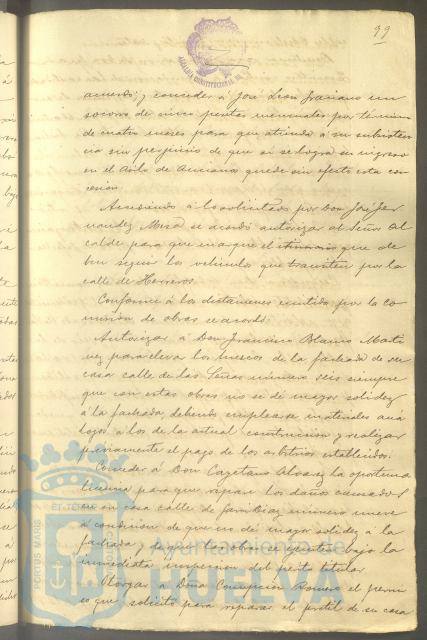 99
acuerdo; y conceder á José León Graciano un
socorro de cinco pesetas mensuales por término
de cuatro meses para que atienda a su subsisten
cia sin perjuicio de que si se logra su ingreso
en el Asilo de Ancianos quede sin efecto esta con
cesión.
Accediendo á lo solicitado por Don José Fer
nandez Mora se acordó autorizar al Señor Al
calde para que marque el itinerario que de
ben seguir los vehículos que transiten por la
calle de Herreros.
Conforme á los dictamenes emitidos por la co
misión de obras se acordó:
Autorizar á Don Francisco Blanco Marti
nez para elevar los huecos de la fachada de su
casa calle de las Señas número seis siempre
que con estas obras no se dé mayor solidez
á la fachada, debiendo emplearse materiales aná
logos á los de la actual construcción y realizar
previamente el pago de los arbitrios establecidos.
Conceder á Don Cayetano Alvarez la oportuna
licencia para que repare los daños causados
en su casa calle de número nueve
á condición de que no dé mayor solidez á la
fachada y de que la obra se ejecute bajo la
inmediata inspección del perito titular.
Otorgar á Doña Concepción Romero el permi
so que solicita para reparar el pretil de su casa
PORTUS MARIS
ET TE
Ayuntamiento de
HUELVA